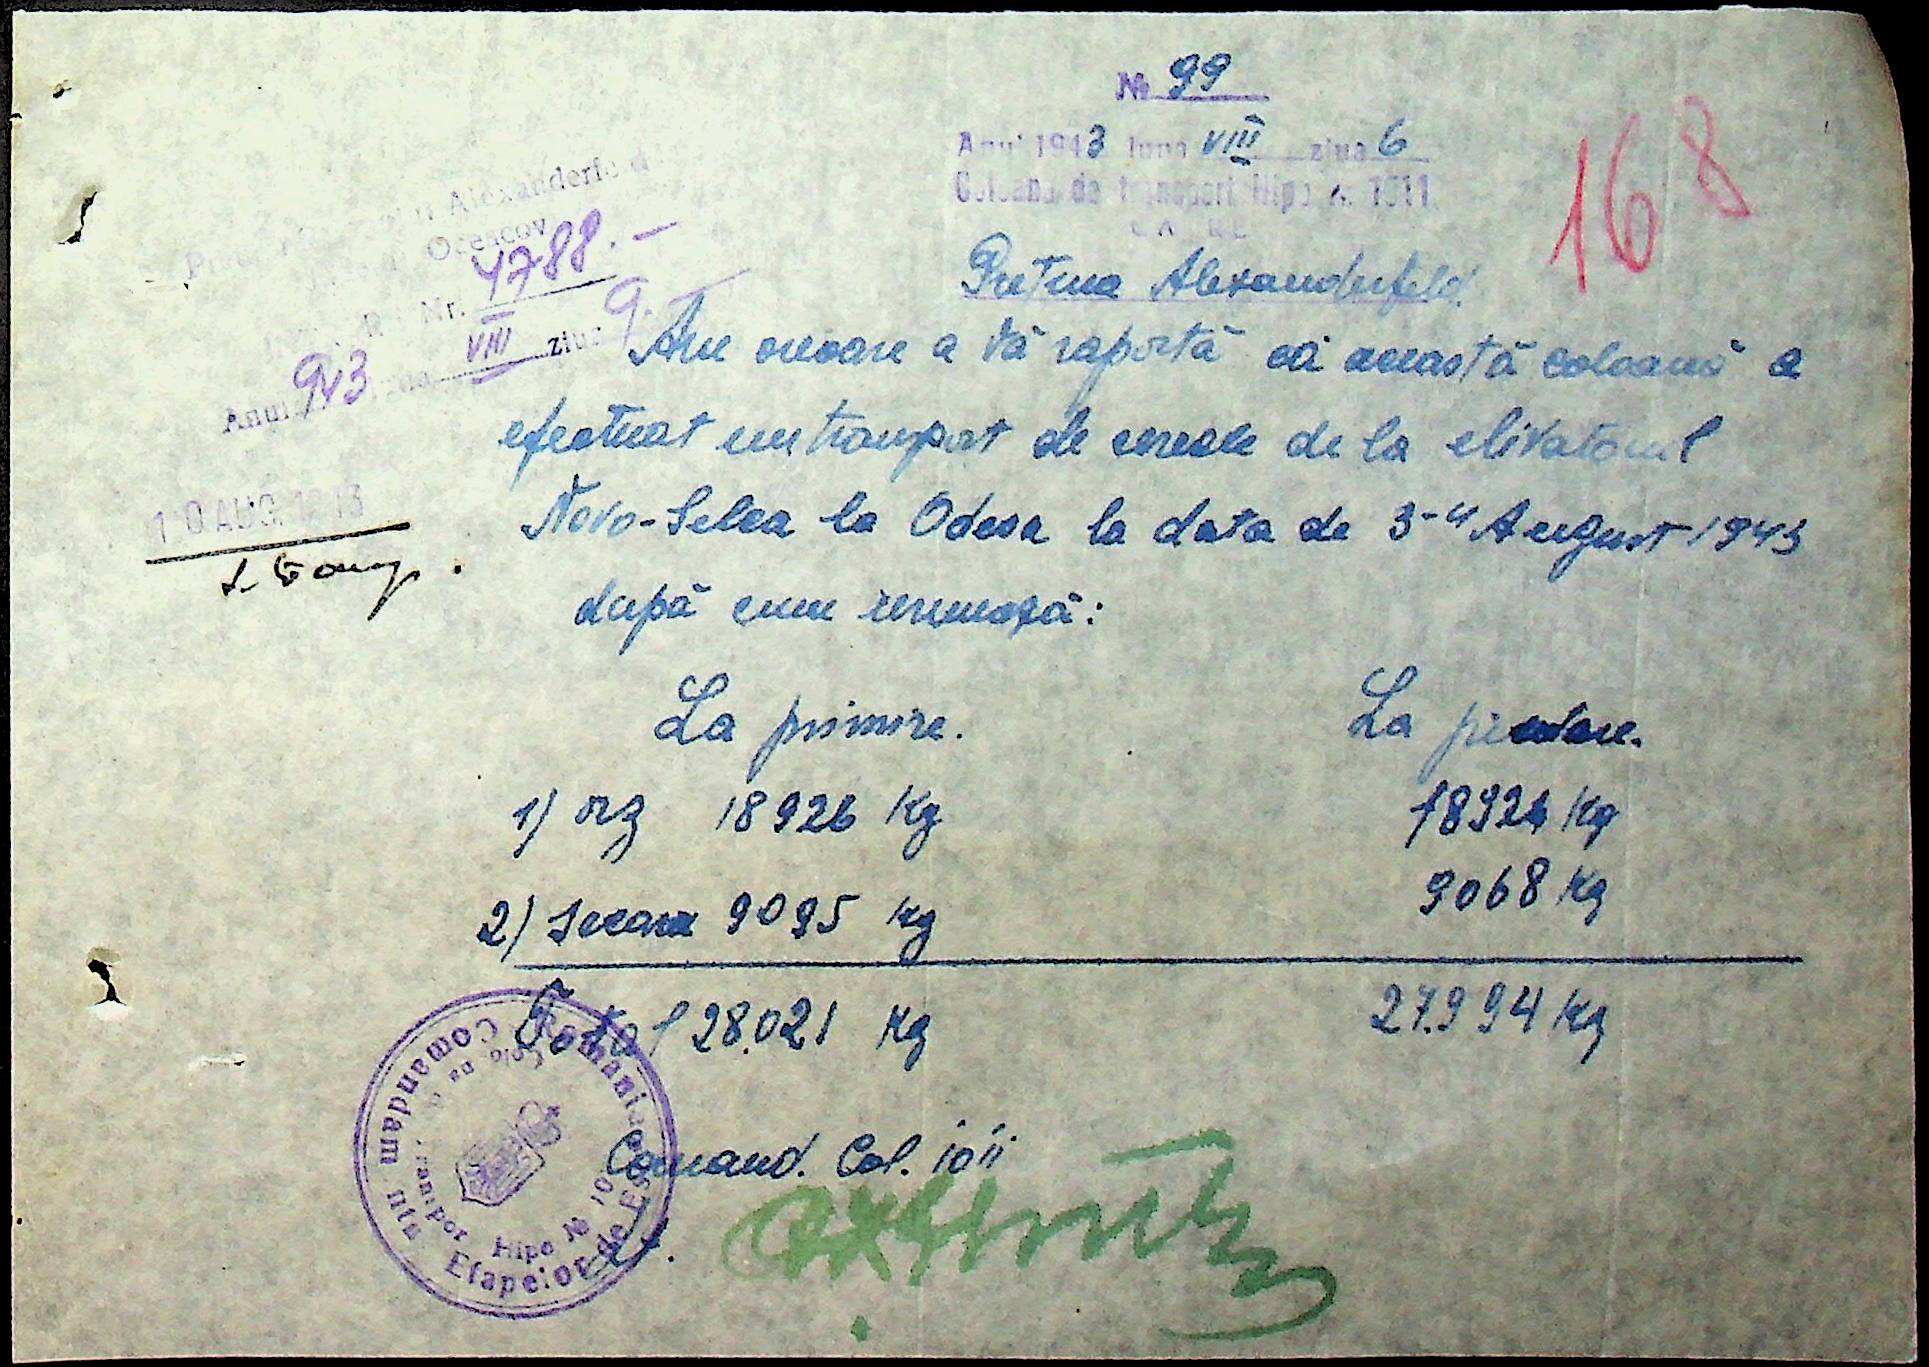 № 99
Anul 1943 luna VIII ziua 6
Coloana de transport Hipo № 1011
168
Alexanderfeld
Ocescov
Nr. 4788.-
Anul 943 VIII ziua 9.
Pretura Alexanderfeld.
Am onoare a Vă raportă că această coloană a
efectuat un transport de cereale de la elivatorul
Novo-Selca la Odesa la data de 3-4 August 1943
după cum urmează:
10 AUG. 1943
La primire. La predare.
1) orz 18926 Kg 18926 Kg
2) Secara 9095 Kg 9068 Kg
Total 28.021 Kg 27.994 Kg
Comand. Col. 1011
Romania
Comandam
Etapelor de Est
Hipo №